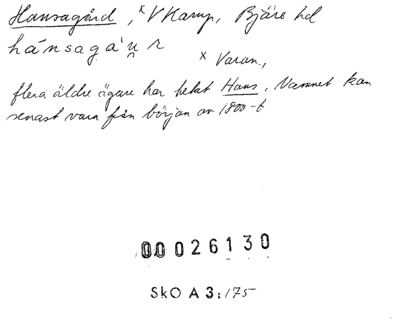 Hansagård, × V Karup, Bjäre hd
hánsagàu̯r
× Varan,
flera äldre ägare har hetat Hans. Namnet kan
senast vara från början av 1800-t
00026130
SkO A 3:175